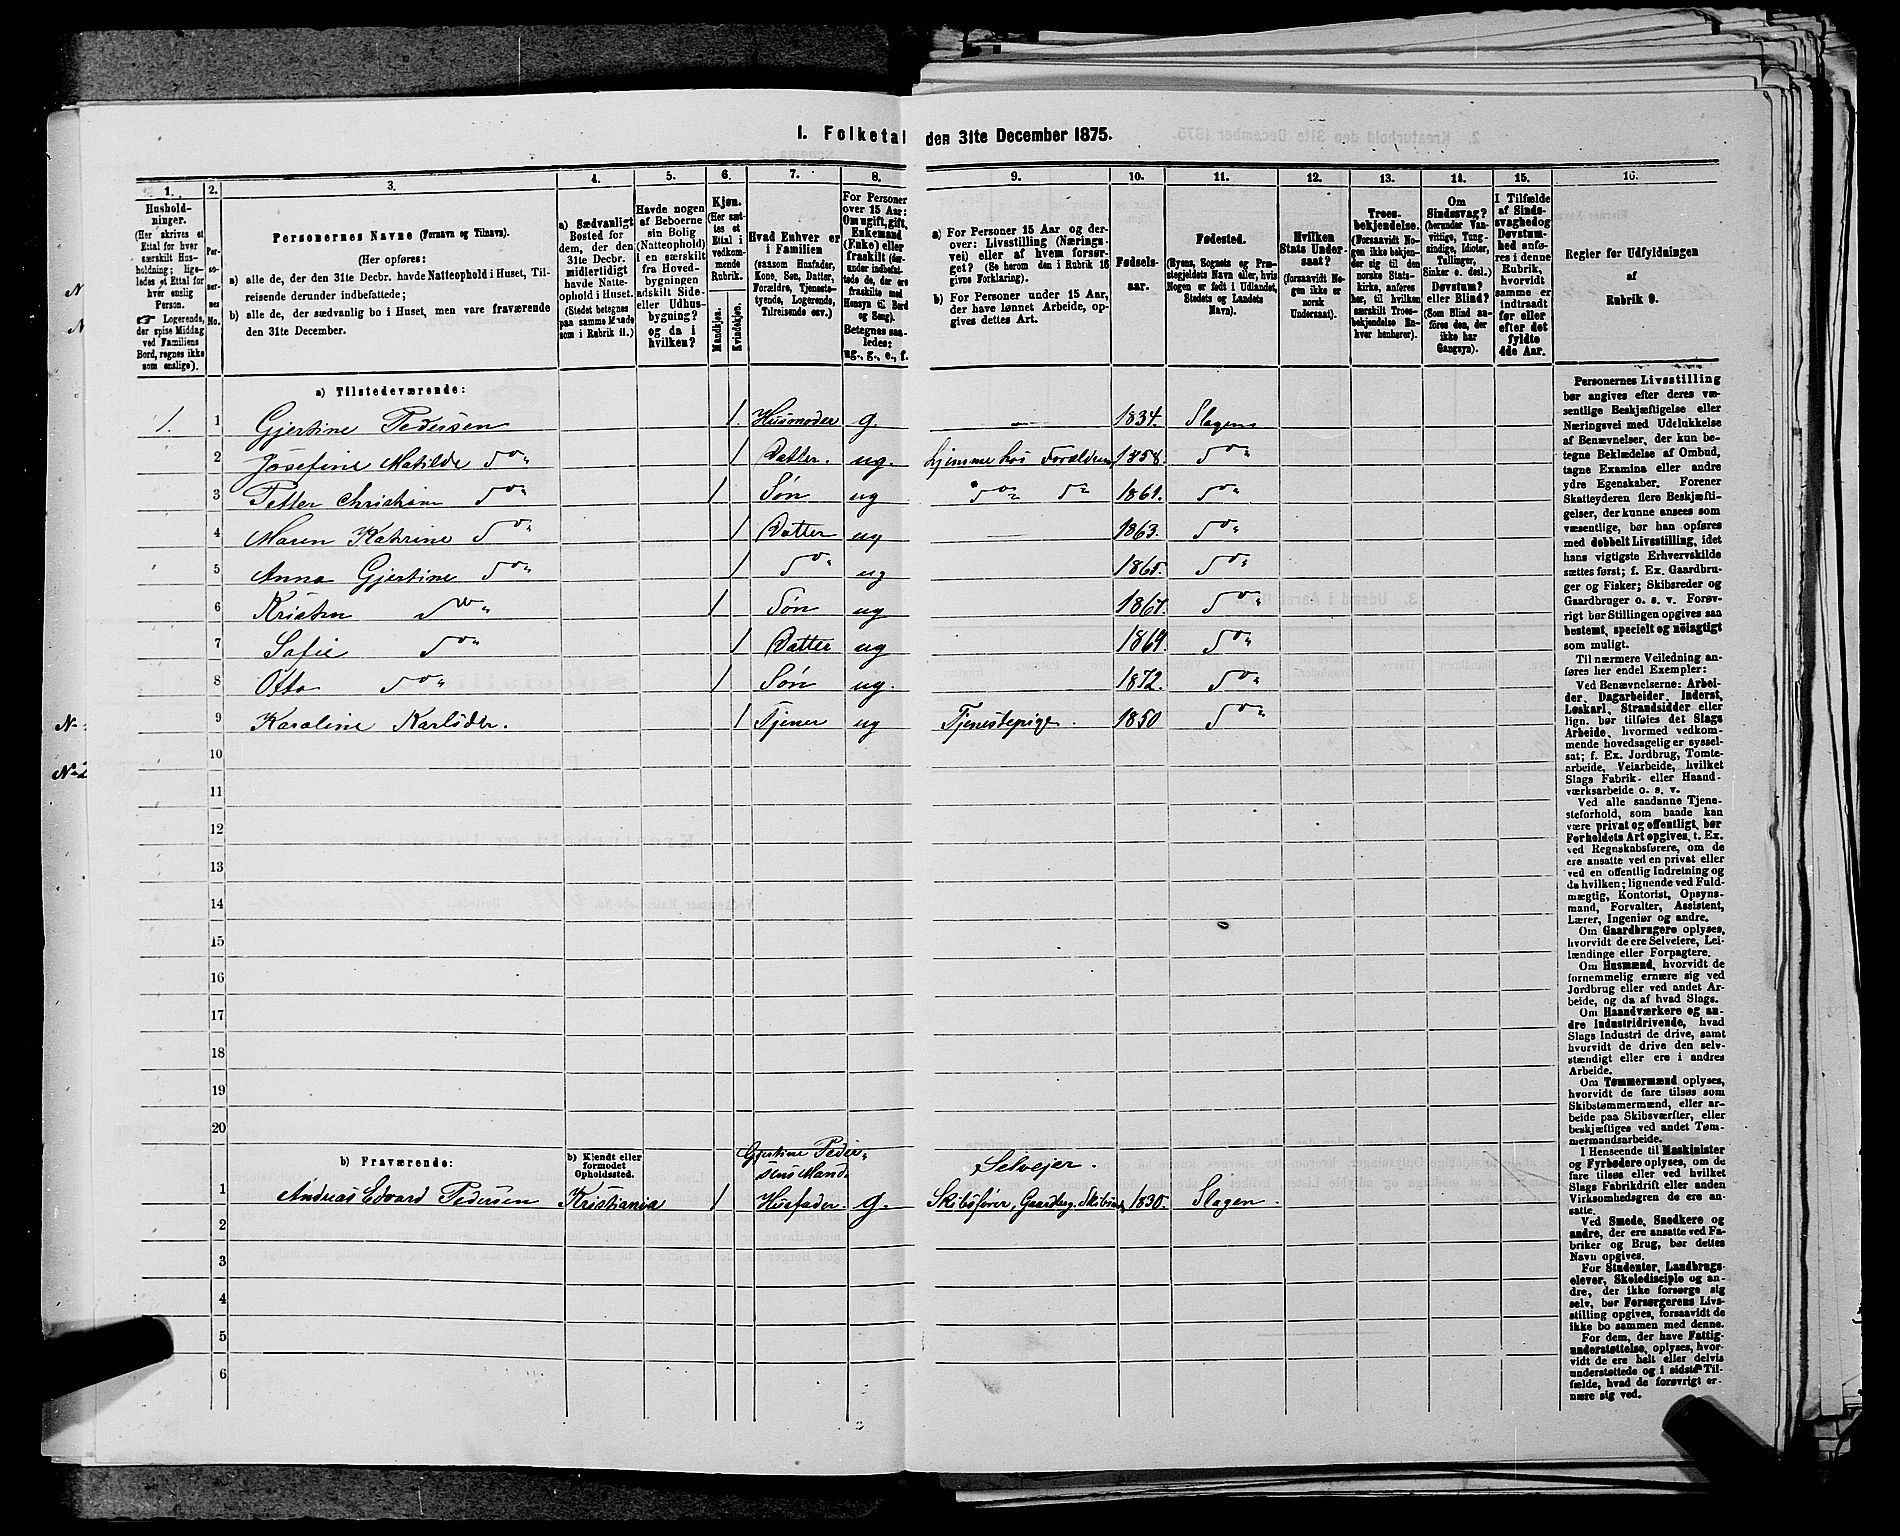 1. Folketal den 31te December 1875.
1. 2. 3. 4. 5. 6. 7. 8. 9. 10. 11. 12. 13. 14. 15. 16.
Hushold-
ninger.
(Her skrives et
Ettal for hver
særskilt Hus-
holdning; lige-
ledes et Ettal for
hver enslig
Person.
☞ Logerende,
der spise Middag
ved Familiens
Bord, regnes ikke
som enslige).
Per-
so-
ner-
nes
No.
Personernes Navne (Fornavn og Tilnavn).
(Her opføres:
a) alle de, der den 31te Decbr. havde Natteophold i Huset, Til-
reisende derunder indbefattede;
b) alle de, der sædvanlig bo i Huset, men vare fraværende
den 31te December.
a) Sædvanligt
Bosted for
dem, der den
31te Decbr.
midlertidigt
havde Natte-
ophold i Huset.
(Stedet betegnes
paa samme Maade
som i Rubrik 11.)
Havde nogen
af Beboerne
sin Bolig
(Natteophold)
i en særskilt
fra Hoved-
bygningen
adskilt Side-
eller Udhus-
bygning?
og da i
hvilken?
Kjøn.
(Her sæt-
tes et
Ettal i
vedkom-
mende
Rubrik.
Mandkjøn.
Kvindekjøn.
Hvad Enhver er
i Familien
(saasom Husfader,
Kone, Søn, Datter,
Forældre, Tjeneste-
tyende, Logerende,
Tilreisende osv.)
For Personer
over 15 Aar:
Om ugift, gift,
Enkemand
(Enke) eller
fraskilt (der-
under indbefat-
tede de, der ere
fraskilte med
Hensyn til Bord
og Seng).
Betegnes saa-
ledes:
ug., g., e., f.
a) For Personer 15 Aar og der-
over: Livsstilling (Nærings-
vei) eller af hvem forsør-
get? (Se herom den i Rubrik 16
givne Forklaring).
b) For Personer under 15 Aar,
der have lønnet Arbeide, op-
gives dettes Art.
Fødsels-
aar.
Fødested.
(Byens, Sognets og Præ-
stegjeldets Navn eller, hvis
Nogen er født i Udlandet,
Stedets og Landets
Navn).
Hvilken
Stats Under-
saat?
(forsaavidt No-
gen ikke er
norsk
Undersaat).
Troes-
bekjendelse.
(Forsaavidt No-
gen ikke bekjen-
der sig til den
norske Stats-
kirke, anføres
her, til hvilken
særskilt Troes-
bekjendelse En-
hver henhører).
Om
Sindssvag?
(herunder Van-
vittige, Tung-
sindige, Idioter,
Tullinger,
Sinker o. desl.)
Døvstum?
eller Blind?
(Som Blind an-
føres den, der
ikke har
Gangsyn).
I Tilfælde
af Sinds-
svaghed og
Døvstum-
hed anfø-
res i denne
Rubrik,
hvorvidt
samme er
indtraadt
før eller
efter det
fyldte
4de Aar.
Regler for Udfyldningen
af
Rubrik 9.
a) Tilstedeværende:
1. 1 Gjertine Pedersen 1. Husmoder g. — 1834. Slagen
2 Josefine Matilde Do 1 Datter. ug. hjemme hos Forældrene 1858. Do
3 Petter Christian Do 1 Søn ug Do Do 1861. Do
4 Maren Kathrine Do 1 Datter ug — 1863. Do
5 Anna Gjertine Do 1 Do ug 1865. Do
6 Kristen Do 1 Søn ug 1867. Do
7 Sofie Do 1 Datter ug 1869. Do
8 Otto Do 1 Søn ug. 1872. Do
9 Karoline Karlsdter. 1 Tjener ug Tjenestepige. 1850 Do
10
11
12
13
14
15
16
17
18
19
20
b) Fraværende:
b) Kjendt eller
formodet
Opholdssted.
Gjertine Peder-
sens Mand.
Selvejer.
1 Andreas Edvard Pedersen Kristiania 1 Husfader. g. Skibsfører, Gaardbrg. 1830. Slagen.
2
3
4
5
6
Personernes Livsstilling
bør angives efter deres væ-
sentlige Beskjæftigelse eller
Næringsvei med Udelukkelse
af Benævnelser, der kun be-
tegne Beklædelse af Ombud,
tagne Examina eller andre
ydre Egenskaber. Forener
Skatteyderen flere Beskjæfti-
gelser, der kunne ansees som
væsentlige, bør han opføres
med dobbelt Livsstilling, idet
hans vigtigste Erhvervskilde
sættes først; f. Ex. Gaardbru-
ger og Fisker; Skibsreder og
Gaardbruger o. s. v. Forøv-
rigt bør Stillingen opgives saa
bestemt, specielt og nöiagtigt
som muligt.
Til nærmere Veiledning an-
føres her endel Exempler:
Ved Benævnelserne: Arbei-
der, Dagarbeider, Inderst,
Løskarl, Strandsidder eller
lign. bør tilføies det Slags
Arbeide, hvormed vedkom-
mende hovedsagelig er syssel-
sat; f. Ex. Jordbrug, Tomte-
arbeide, Veiarbeide, hvilket
Slags Fabrik- eller Haand-
værksarbeide o. s. v.
Ved alle saadanne Tjene-
steforhold, som baade kan
være privat og offentligt, bør
Forholdets Art opgives, t. Ex.
ved Regnskabsførere, om de
ere ansatte ved en privat eller
ved en offentlig Indretning og
da hvilken; lignende ved Fuld-
mægtig, Kontorist, Opsyns-
mand, Forvalter, Assistent,
Lærer, Ingeniør og andre.
Om Gaardbrugere oplyses,
hvorvidt de ere Selveiere, Lei-
lændinge eller Forpagtere.
Om Husmænd, hvorvidt de
fornemmelig ernære sig ved
Jordbrug eller ved andet Ar-
beide, og da af hvad Slags.
Om Haandværkere og an-
dre Industridrivende, hvad
Slags Industri de drive, samt
hvorvidt de drive den selv-
stændigt eller ere i andres
Arbeide.
Om Tømmermænd oplyses,
hvorvidt de fare tilsøs som
Skibstømmermænd, eller ar-
beide paa Skibsværfter, eller
beskjæftiges ved andet Tøm-
mermandsarbeide.
I Henseende til Maskinister
og Fyrbødere oplyses, om de
fare tilsøs eller ved hvilket
Slags Fabrikdrift eller anden
Virksomhedsgren de ere an-
satte.
Ved Smede, Snedkere og
andre, der ere ansatte ved Fa-
briker og Brug, bør dettes
Navn opgives.
For Studenter, Landbrugs-
elever, Skoledisciple og an-
dre, der ikke forsørge sig
selv, bør Forsørgerens Livs-
stilling opgives, forsaavidt de
ikke bo sammen med denne.
For dem, der have Fattig-
understøttelse, oplyses, hvor-
vidt de ere helt eller delvis
understøttede og i sidste Til-
fælde, hvad de forøvrigt er-
nære sig ved.